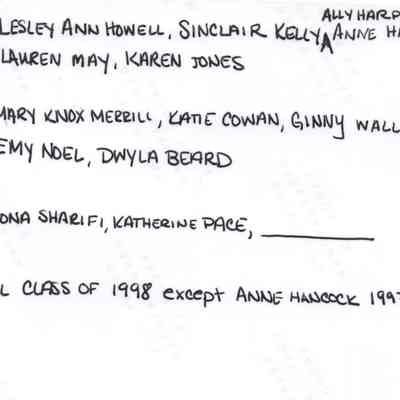 ALLY HARP
LESLEY ANN HOWELL, SINCLAIR KELLY, ANNE HA
LAUREN MAY, KAREN JONES
MARY KNOX MERRILL, KATIE COWAN, GINNY WALL
EMY NOEL, DWYLA BEARD
ONA SHARIFI, KATHERINE PACE, ________
L CLASS OF 1998 except ANNE HANCOCK 1997